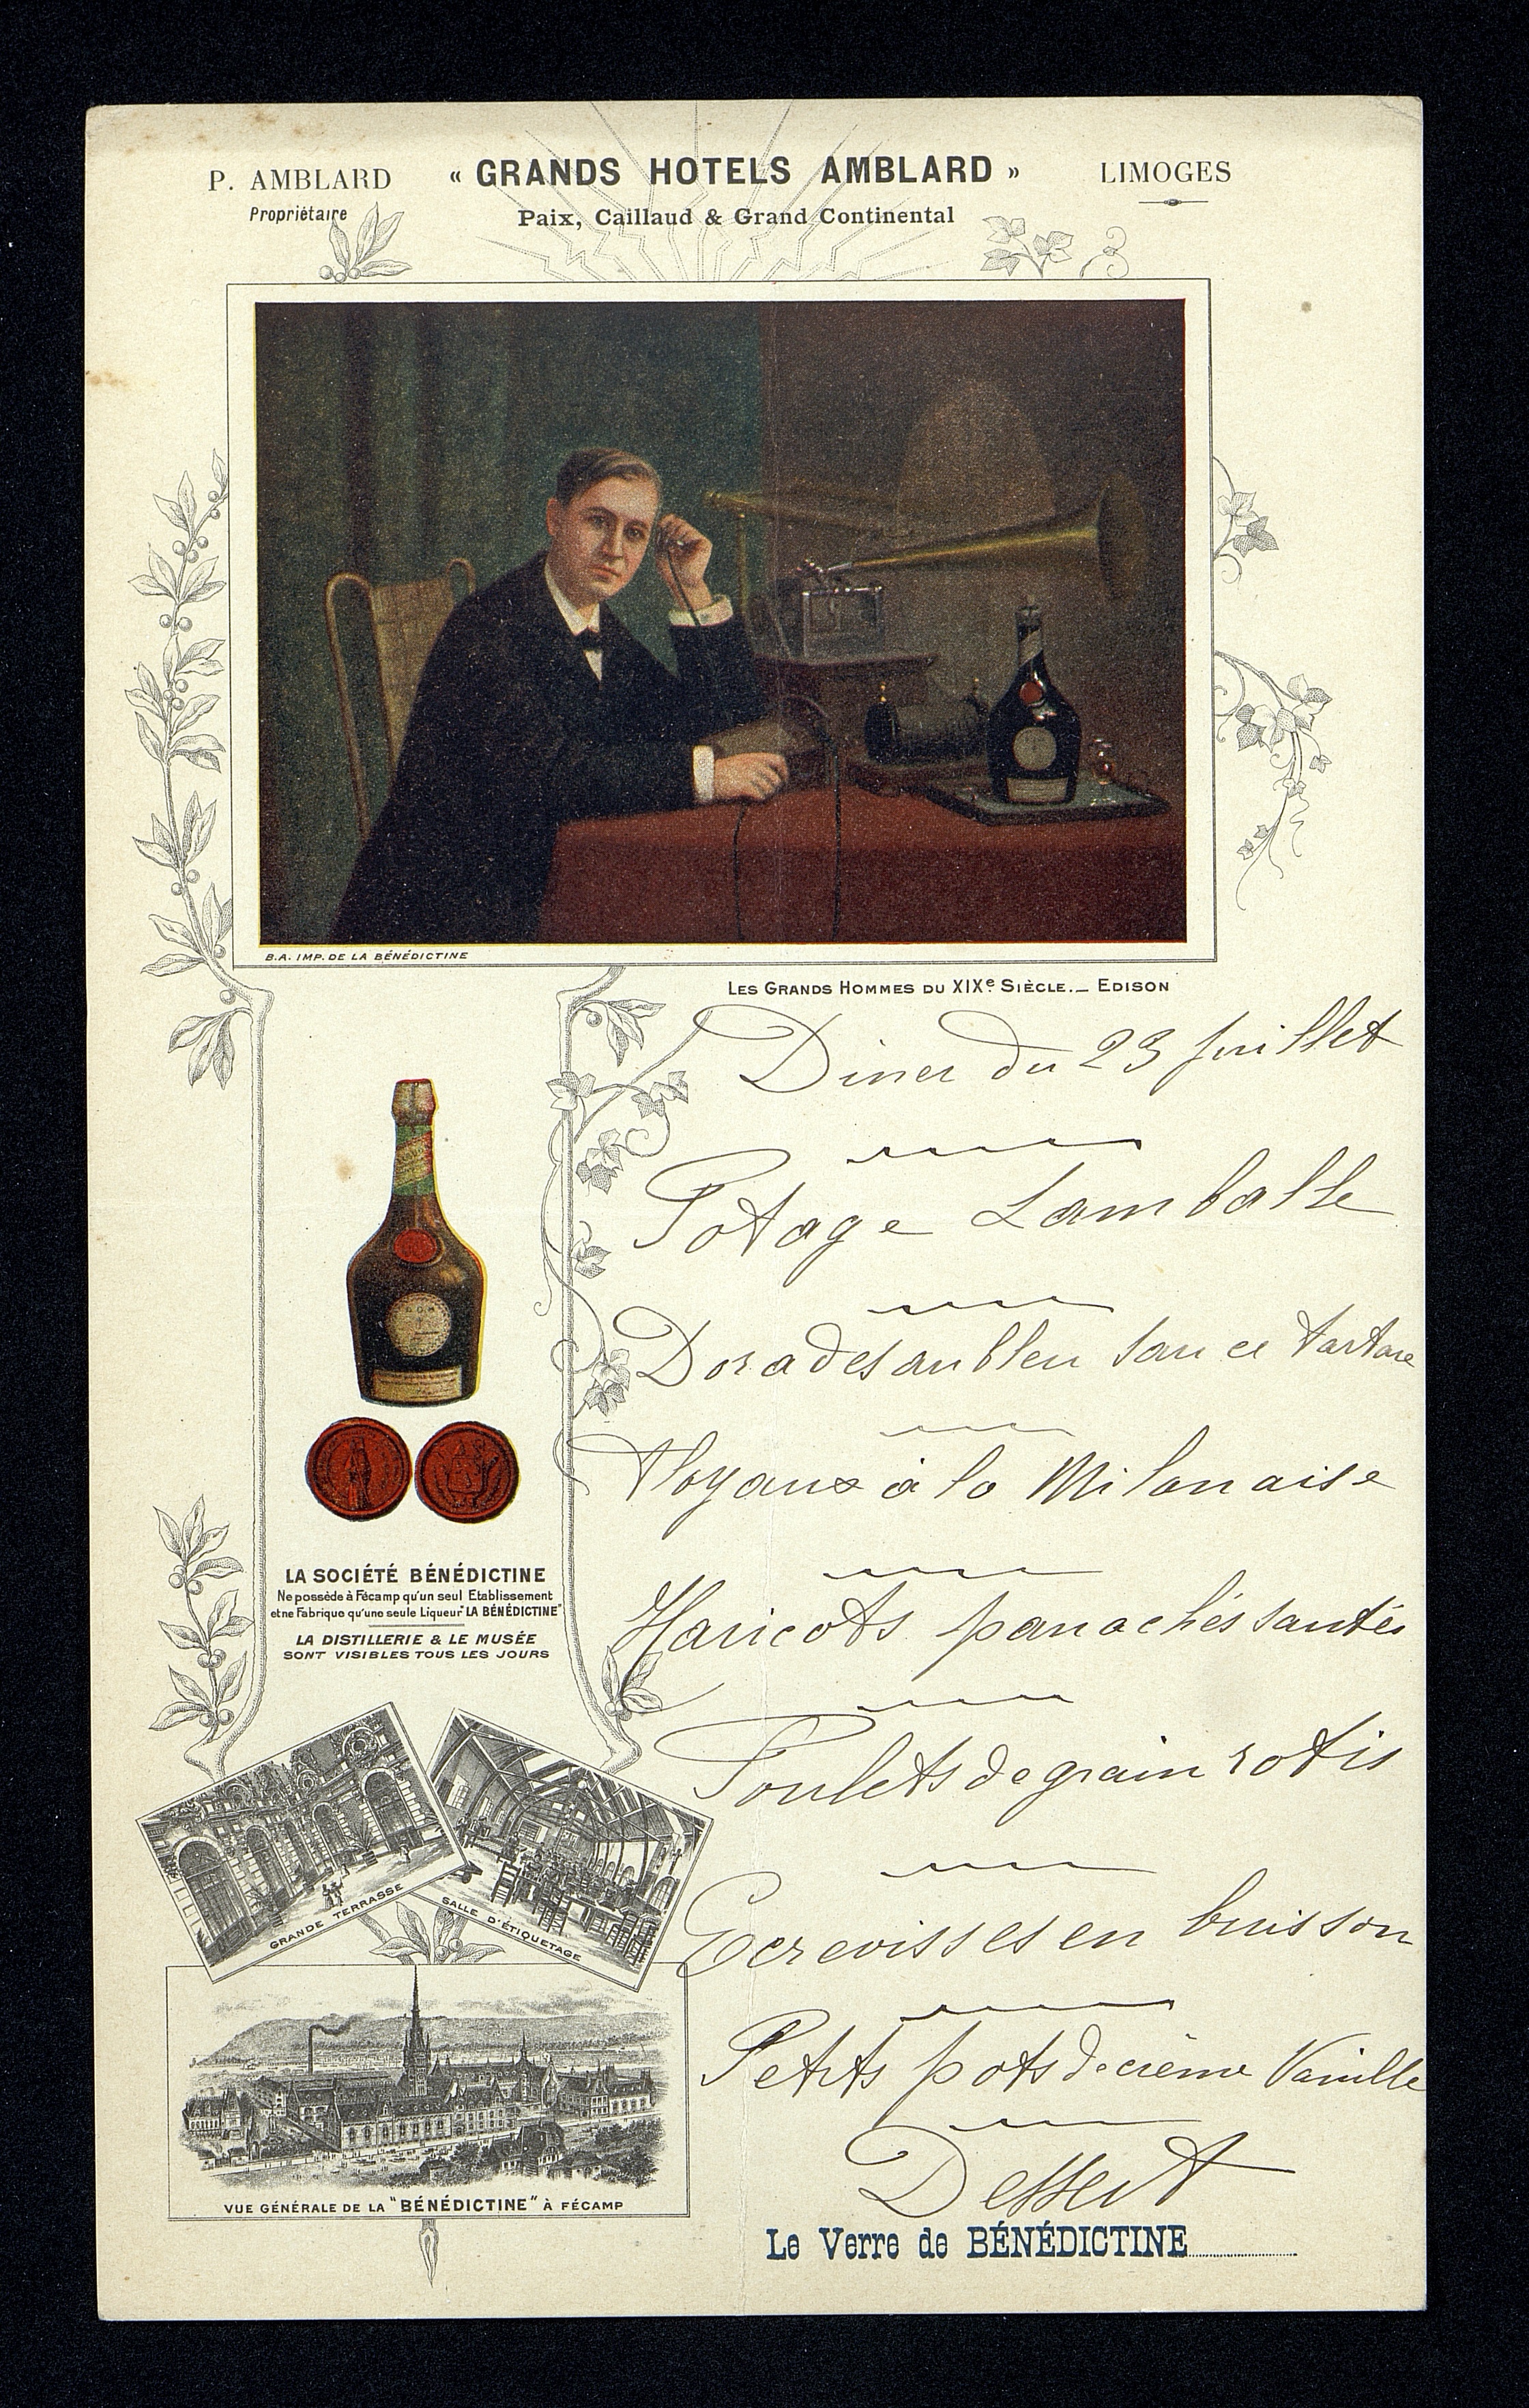 P. AMBLARD
Propriétaire
« GRANDS HOTELS AMBLARD »
Paix, Caillaud & Grand Continental
LIMOGES
B.A. IMP. DE LA BÉNÉDICTINE
LES GRANDS HOMMES DU XIXe SIÈCLE._ EDISON
Diner du 23 Juillet
Potage Lamballe
Dorades au bleu sauce tartare
Noyaux à la Milanaise
Haricots panachés sautés
Poulets de grain rotis
Ecrevisses en buisson
Petits pots de crème Vanille
Dessert
Le Verre de BÉNÉDICTINE
LA SOCIÉTÉ BÉNÉDICTINE
Ne possède à Fécamp qu'un seul Etablissement
et ne Fabrique qu'une seule Liqueur "LA BÉNÉDICTINE"
LA DISTILLERIE & LE MUSÉE
SONT VISIBLES TOUS LES JOURS
GRANDE TERRASSE
SALLE D'ÉTIQUETAGE
VUE GÉNÉRALE DE LA "BÉNÉDICTINE" À FÉCAMP